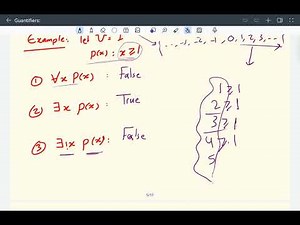 Quantifiers:
Example: let U = I
{..., -2, -1, 0, 1, 2, 3, ...}
p(x): x ≥ 1
① ∀x p(x): False
② ∃x p(x): True
③ ∃!x p(x): False
1 ≥ 1
2 ≥ 1
3 ≥ 1
4 ≥ 1
5